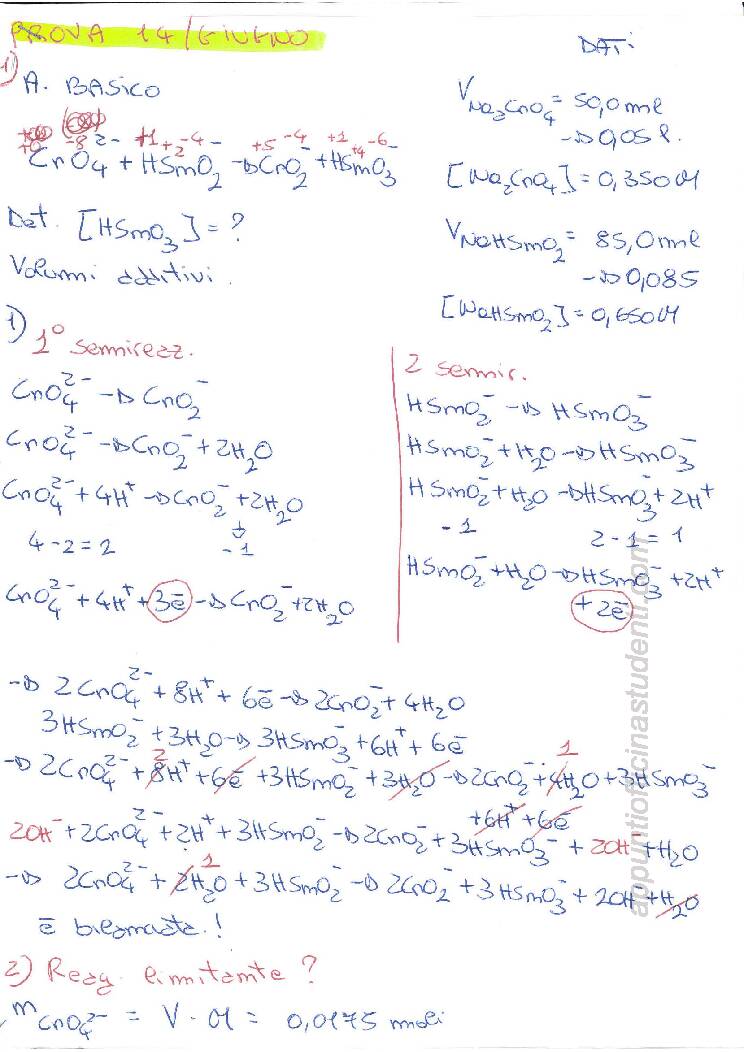 PROVA 14/GIUGNO
DATI
1)
A. BASICO
V Na2CrO4 = 50,0 ml
→ 0,05 l.
+6 -8 2- +1 +2 -4 - +5 -4 +1 +4 -6 -
CrO4 + HSnO2 → CrO2⁻ + HSnO3
[Na2CrO4] = 0,350 M
Det. [HSnO3] = ?
V NaHSnO2 = 85,0 ml
→ 0,085
Volumi additivi.
[NaHSnO2] = 0,650 M
1)
1° semireaz.
CrO4²⁻ → CrO2⁻
CrO4²⁻ → CrO2⁻ + 2H2O
CrO4²⁻ + 4H⁺ → CrO2⁻ + 2H2O
4-2=2 -1
CrO4²⁻ + 4H⁺ + 3ē → CrO2⁻ + 2H2O
2 semir.
HSnO2⁻ → HSnO3⁻
HSnO2⁻ + H2O → HSnO3⁻
HSnO2⁻ + H2O → HSnO3⁻ + 2H⁺
-1 2-1=1
HSnO2⁻ + H2O → HSnO3⁻ + 2H⁺
+ 2ē
→ 2CrO4²⁻ + 8H⁺ + 6ē → 2CrO2⁻ + 4H2O
3HSnO2⁻ + 3H2O → 3HSnO3⁻ + 6H⁺ + 6ē
2 1
→ 2CrO4²⁻ + 8H⁺ + 6ē + 3HSnO2⁻ + 3H2O → 2CrO2⁻ + 4H2O + 3HSnO3⁻
+ 6H⁺ + 6ē
2OH⁻ + 2CrO4²⁻ + 2H⁺ + 3HSnO2⁻ → 2CrO2⁻ + 3HSnO3⁻ + 2OH⁻ + H2O
1
→ 2CrO4²⁻ + 2H2O + 3HSnO2⁻ → 2CrO2⁻ + 3HSnO3⁻ + 2OH⁻ + H2O
è bilanciata!
2) Reag. limitante?
n CrO4²⁻ = V · M = 0,0175 moli
appuntiofficinastudenti.com